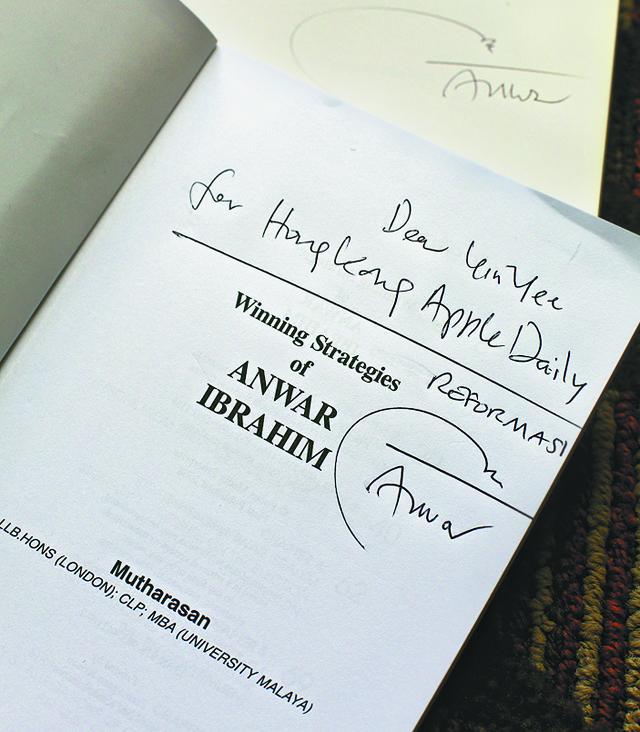 Anwar
Dear Yin Yee
for Hong Kong Apple Daily
Winning Strategies
of
ANWAR
IBRAHIM
REFORMASI
Anwar
Mutharasan
LLB.HONS (LONDON); CLP; MBA (UNIVERSITY MALAYA)